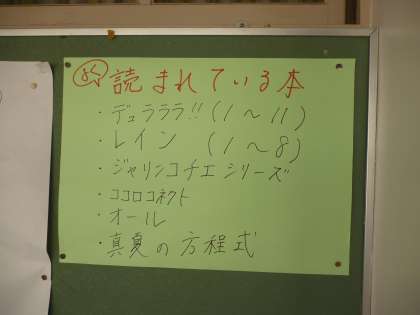 よく読まれている本
・デュラララ!!(1～11)
・レイン (1～8)
・ジャリンコチエシリーズ
・ココロコネクト
・オール
・真夏の方程式